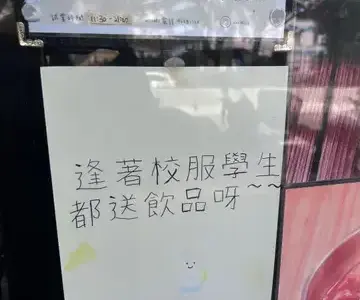 11:30-21:00
逢著校服學生
都送飲品呀~~